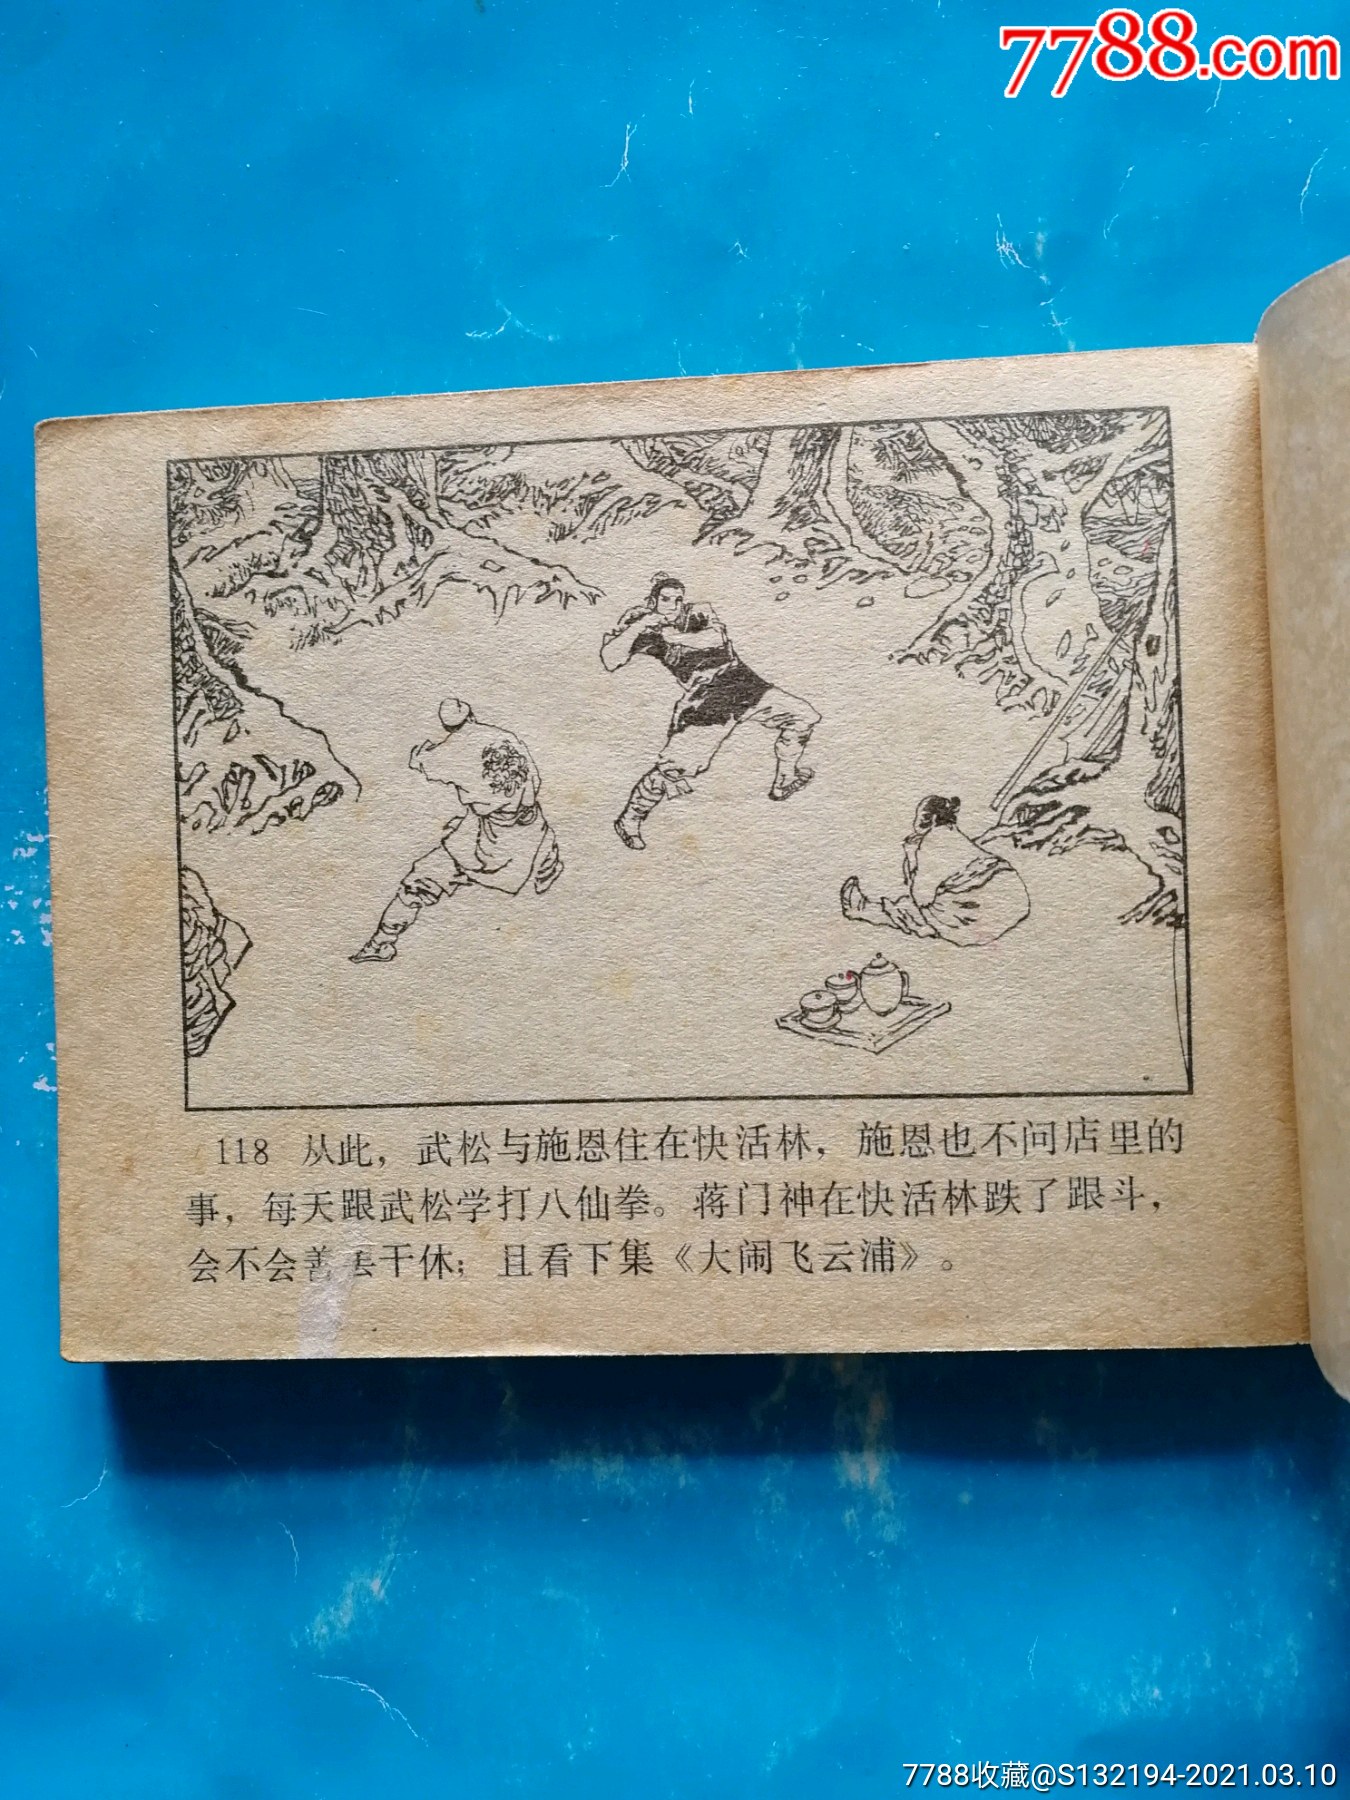 7788.com
118 从此，武松与施恩住在快活林，施恩也不问店里的
事，每天跟武松学打八仙拳。蒋门神在快活林跌了跟斗，
会不会善干休；且看下集《大闹飞云浦》。
7788收藏@S132194-2021.03.10